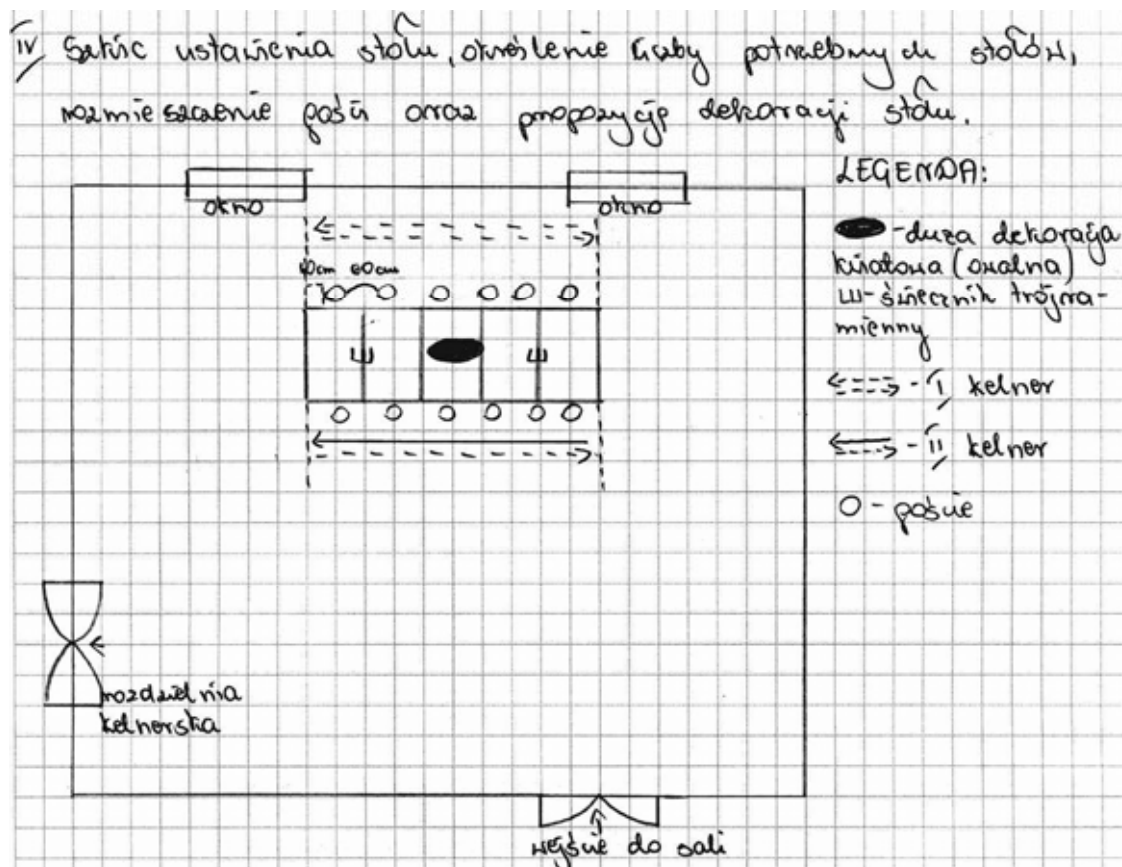 IV Szkic ustawienia stołu, określenie liczby potrzebnych stołów,
rozmieszczenie gości oraz propozycję dekoracji stołu.
okno
okno
60cm
LEGENDA:
- duża dekoracja
kwiatowa (owalna)
- świecznik trójra-
mienny
- I kelner
- II kelner
- goście
rozdzielnia
kelnerska
wejście do sali